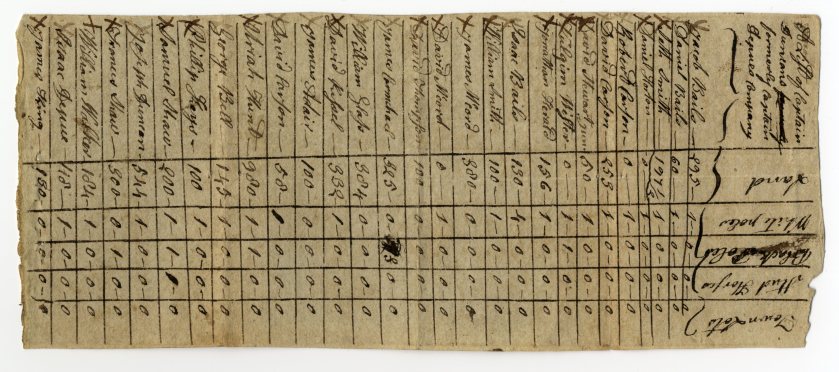 A List of Captain
Duncans
formerly Captain
Deques Company
Land
White poles
Black Poles
Stud Horses
Town Lots
X Jacob 295 - 1 - 0 0 0
X Daniel 60 - 1 - 0 0 0
X Seth Smith 197½ 1 - 0 0 0
X Daniel Carson 0 1 - 0 0 0
Robert Carson - 0 1 - 0 - 0 - 0
David Carson 253 1 - 0 - 0 - 0
X David 50 - 1 - 0 - 0 - 0
X 0 - 1 - 1 0 - 0
X Jonathan 156 1 - 0 0 - 0
X Isaac 130 - 0 0 - 0
X William Smith - 100 - 1 - 0 0 - 0
X James Ward - 380 - 0 - 0 0 - 0
X David Ward - 0 1 0 0 - 0
X David Thompson 100 0 0 0 - 0
X James 525 - 0 3 0 0
X William Glass - 384 0 0 0 - 0
X David 332 1 - 0 0 - 0
X James Adair - 100 - 0 - 0 0 - 0
David Carson - 58 1 0 0 - 0
X Uriah Hunt - 380 1 - 1 0 - 0
George Bell 145 - 1 - 0 0 - 0
X Phillip Hays - 100 1 - 0 0 - 0
X Samuel Shaw - 200 1 - 1 0 0
X Joseph Duncan - 544 1 - 0 0 - 0
X James Shaw - 300 - 1 - 1 0 - 0
X William 184 - 1 - 0 - 0 - 0
Isaac Deque - 118 - 1 - 0 - 0 - 0
X James King - 150 0 0 - 0 - 0